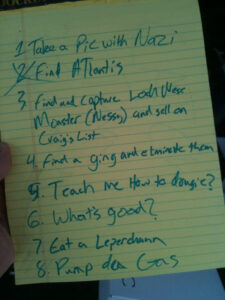 1. Take a Pic with Nazi
2. Find Atlantis
3. Find and Capture Loch Ness
Monster (Nessy) and sell on
Craig's List
4. Find a ging and eliminate them
5. Teach me How to dougie?
6. What's good?
7. Eat a Leperchaun
8. Pump dea Gas